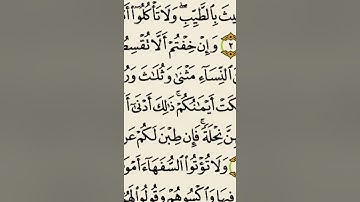 يثَ بِٱلطَّيِّبِۖ وَلَا تَأۡكُلُوٓاْ أَ
٢ وَإِنۡ خِفۡتُمۡ أَلَّا تُقۡسِطُ
ٱلنِّسَآءِ مَثۡنَىٰ وَثُلَٰثَ وَرُ
كَتۡ أَيۡمَٰنُكُمۡۚ ذَٰلِكَ أَدۡنَىٰٓ أَ
نَّ نِحۡلَةٗۚ فَإِن طِبۡنَ لَكُمۡ عَن
وَلَا تُؤۡتُواْ ٱلسُّفَهَآءَ أَمۡوَ
فِيهَا وَٱكۡسُوهُمۡ وَقُولُواْ لَهُ